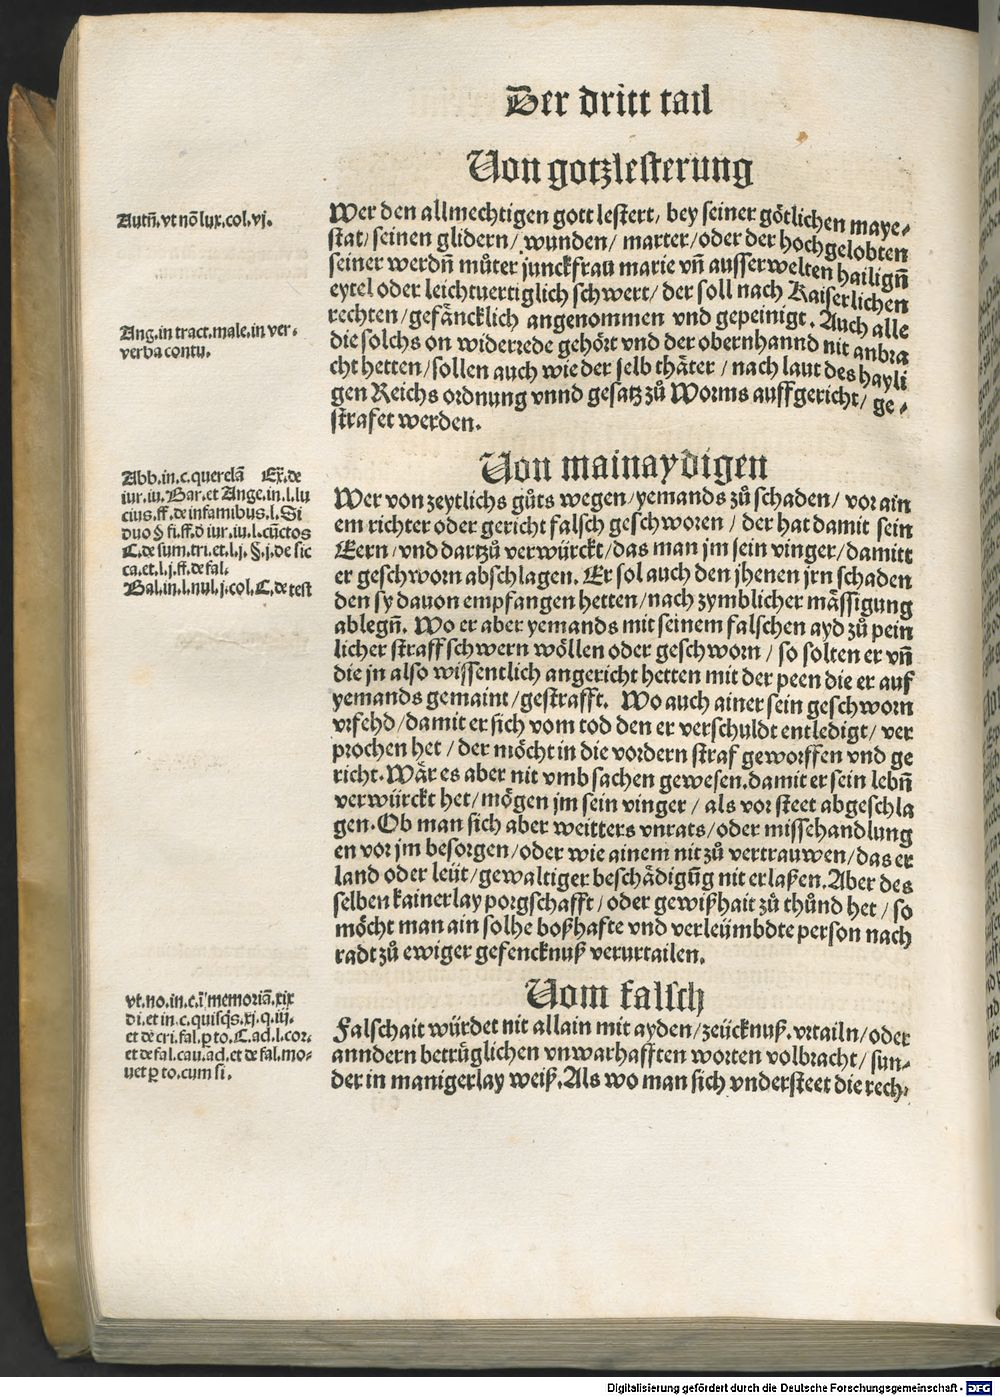 Der dritt tail
Von gotzlesterung
Autñ. vt nõ lux. col. vj.
Wer den allmechtigen gott lestert/ bey seiner götlichen maye⸗
stat/ seinen glidern/ wunden/ marter/ oder der hochgelobten
seiner werdñ můter junckfrau marie vñ ausserwelten hailigñ
eytel oder leichtuertiglich schwert/ der soll nach Kaiserlichen
rechten/ gefäncklich angenommen vnd gepeinigt. Auch alle
Ang. in tract. male. in ver⸗
verba contu.
die solchs on widerrede gehört vnd der obernhannd nit anbra
cht hetten/ sollen auch wie der selb thäter/ nach laut des hayli
gen Reichs ordnung vnnd gesatz zů Worms auffgericht/ ge⸗
strafet werden.
Von mainaydigen
Abb. in. c. querelã Ex̃. de
iur. iu. Bar. et Ange. in. l. lu
cius. ff. de infamibus. l. Si
duo § fi. ff. đ iur. iu. l. cũctos
C. de sum. tri. et. l. j. §. j. de sic
ca. et. l. j. ff. de fal.
Bal. in. l. nul. j. col. C. de test
Wer von zeytlichs gůts wegen/ yemands zů schaden/ vor ain
em richter oder gericht falsch geschworen/ der hat damit sein
Eern/ vnd dartzů verwürckt/ das man jm sein vinger/ damitt
er geschworn abschlagen. Er sol auch den jhenen jrn schaden
den sy dauon empfangen hetten/ nach zymblicher mässigung
ablegñ. Wo er aber yemands mit seinem falschen ayd zů pein
licher straff schwern wöllen oder geschworn/ so solten er vñ
die jn also wissentlich angericht hetten mit der peen die er auf
yemands gemaint/ gestrafft. Wo auch ainer sein geschworn
vrfehd/ damit er sich vom tod den er verschuldt entledigt/ ver
prochen het/ der möcht in die vordern straf geworffen vnd ge
richt. Wär es aber nit vmb sachen gewesen. damit er sein lebñ
verwürckt het/ mögen jm sein vinger/ als vor steet abgeschla
gen. Ob man sich aber weitters vnrats/ oder missehandlung
en vor jm besorgen/ oder wie ainem nit zů vertrauwen/ das er
land oder leüt/ gewaltiger beschädigũg nit erlaßen. Aber des
selben kainerlay porgschafft/ oder gewißhait zů thůnd het/ so
möcht man ain solhe boßhafte vnd verleümbdte person nach
radt zů ewiger gefencknuß verurtailen.
Vom falsch
vt. no. in. c. ĩ memoriã. xix
di. et in. c. quisq̃s. xj. q. iij.
et de cri. fal. ꝑ to. C. ad. l. cor⸗
et de fal. cau. ad. et de fal. mo⸗
uet ꝑ to. cum si.
Falschait würdet nit allain mit ayden/ zeücknuß. vrtailn/ oder
anndern betrüglichen vnwarhafften worten volbracht/ sun⸗
der in manigerlay weiß. Als wo man sich vndersteet die rech⸗
Digitalisierung gefördert durch die Deutsche Forschungsgemeinschaft - DFG